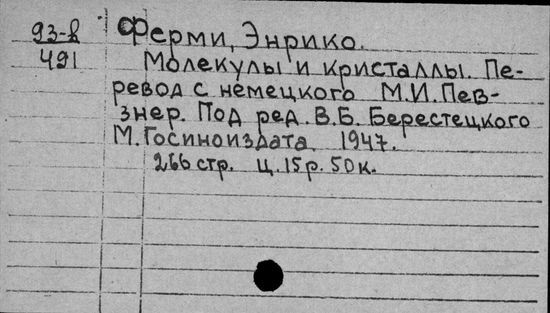 93-в
491
Ферми, Энрико.
Молекулы и кристаллы. Пе-
ревод с немецкого М.И. Пев-
знер. Под ред. В.Б. Берестецкого
М. Госиноиздата 1947.
266 стр. ц. 15 р. 50 к.